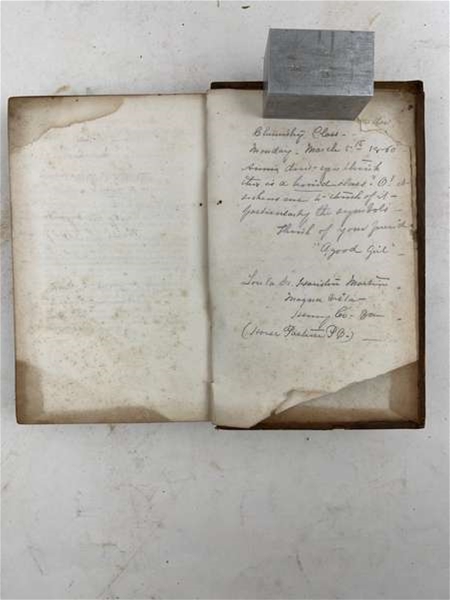 Chemistry Class -
Monday - March 5th 1860
Annie and I think
this is a horrid class" O! it
sickens me to think of it -
Particularly the symbols -
Think of your friend
"A good Girl" -
Martin
Magna Vista
Henry Co - Va
(Horse Pasture P.O.)